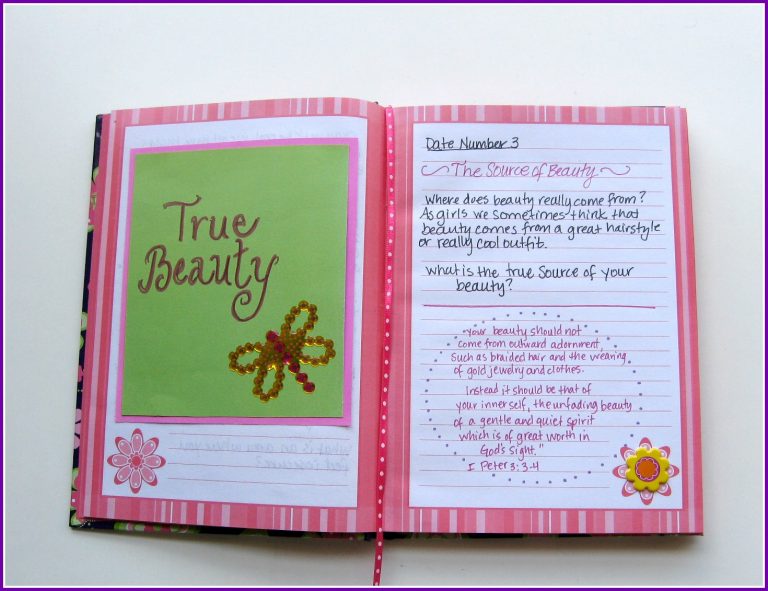 True
Beauty
Date Number 3
The Source of Beauty
Where does beauty really come from?
As girls we sometimes think that
beauty comes from a great hairstyle
or really cool outfit.
What is the true source of your
beauty?
"Your beauty should not
come from outward adornment,
Such as braided hair and the wearing
of gold jewelry and clothes.
Instead it should be that of
your inner self, the unfading beauty
of a gentle and quiet spirit
which is of great worth in
God's sight."
I Peter 3:3-4